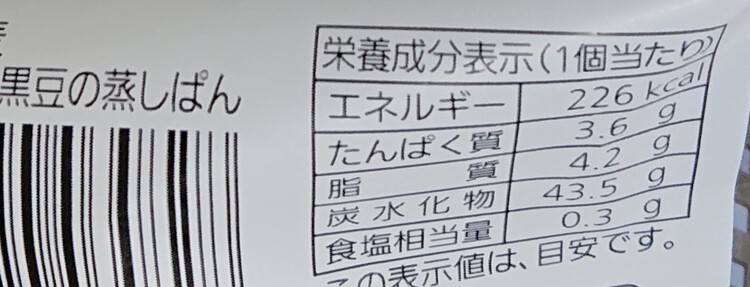 黒豆の蒸しぱん
栄養成分表示(1個当たり)
エネルギー 226 kcal
たんぱく質 3.6 g
脂質 4.2 g
炭水化物 43.5 g
食塩相当量 0.3 g
この表示値は、目安です。